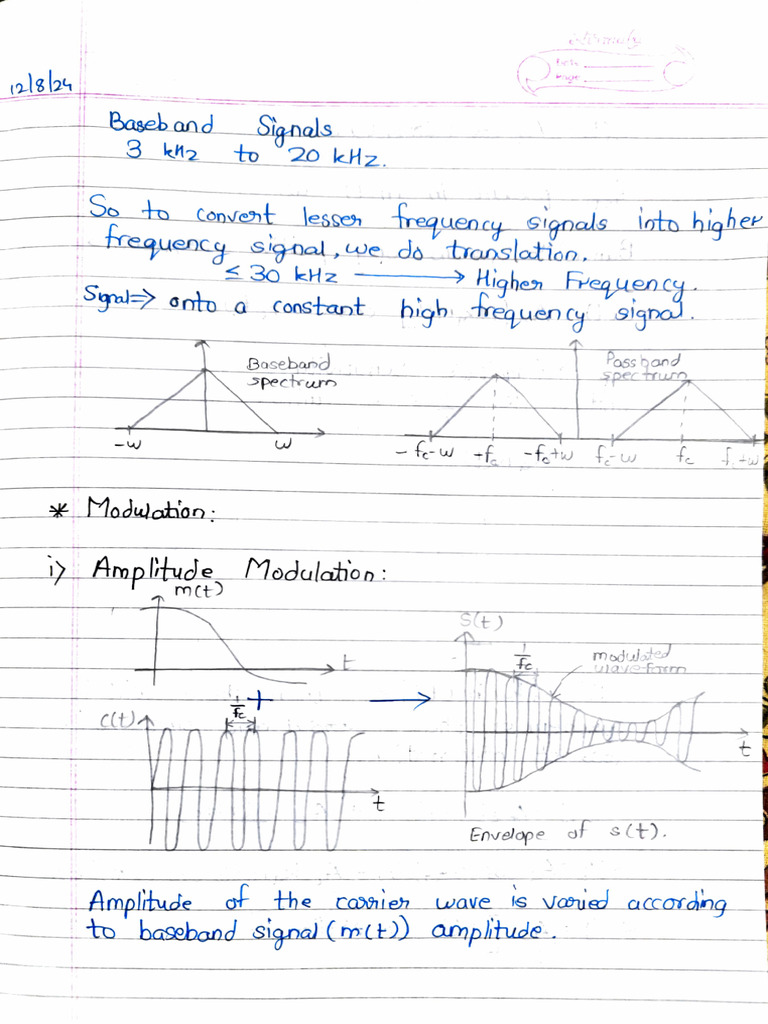 12/8/24
Baseband Signals
3 kHz to 20 kHz.
So to convert lesser frequency signals into higher
frequency signal, we do translation.
≤ 30 kHz ⟶ Higher Frequency.
Signal => onto a constant high frequency signal.
Baseband
spectrum
-w w
Passband
spectrum
-fc-w -fc -fc+w fc-w fc fc+w
* Modulation:
i) Amplitude Modulation:
m(t)
t
+
1/fc
c(t)
t
S(t)
1/fc
modulated
wave form
t
Envelope of s(t).
Amplitude of the carrier wave is varied according
to baseband signal (m(t)) amplitude.